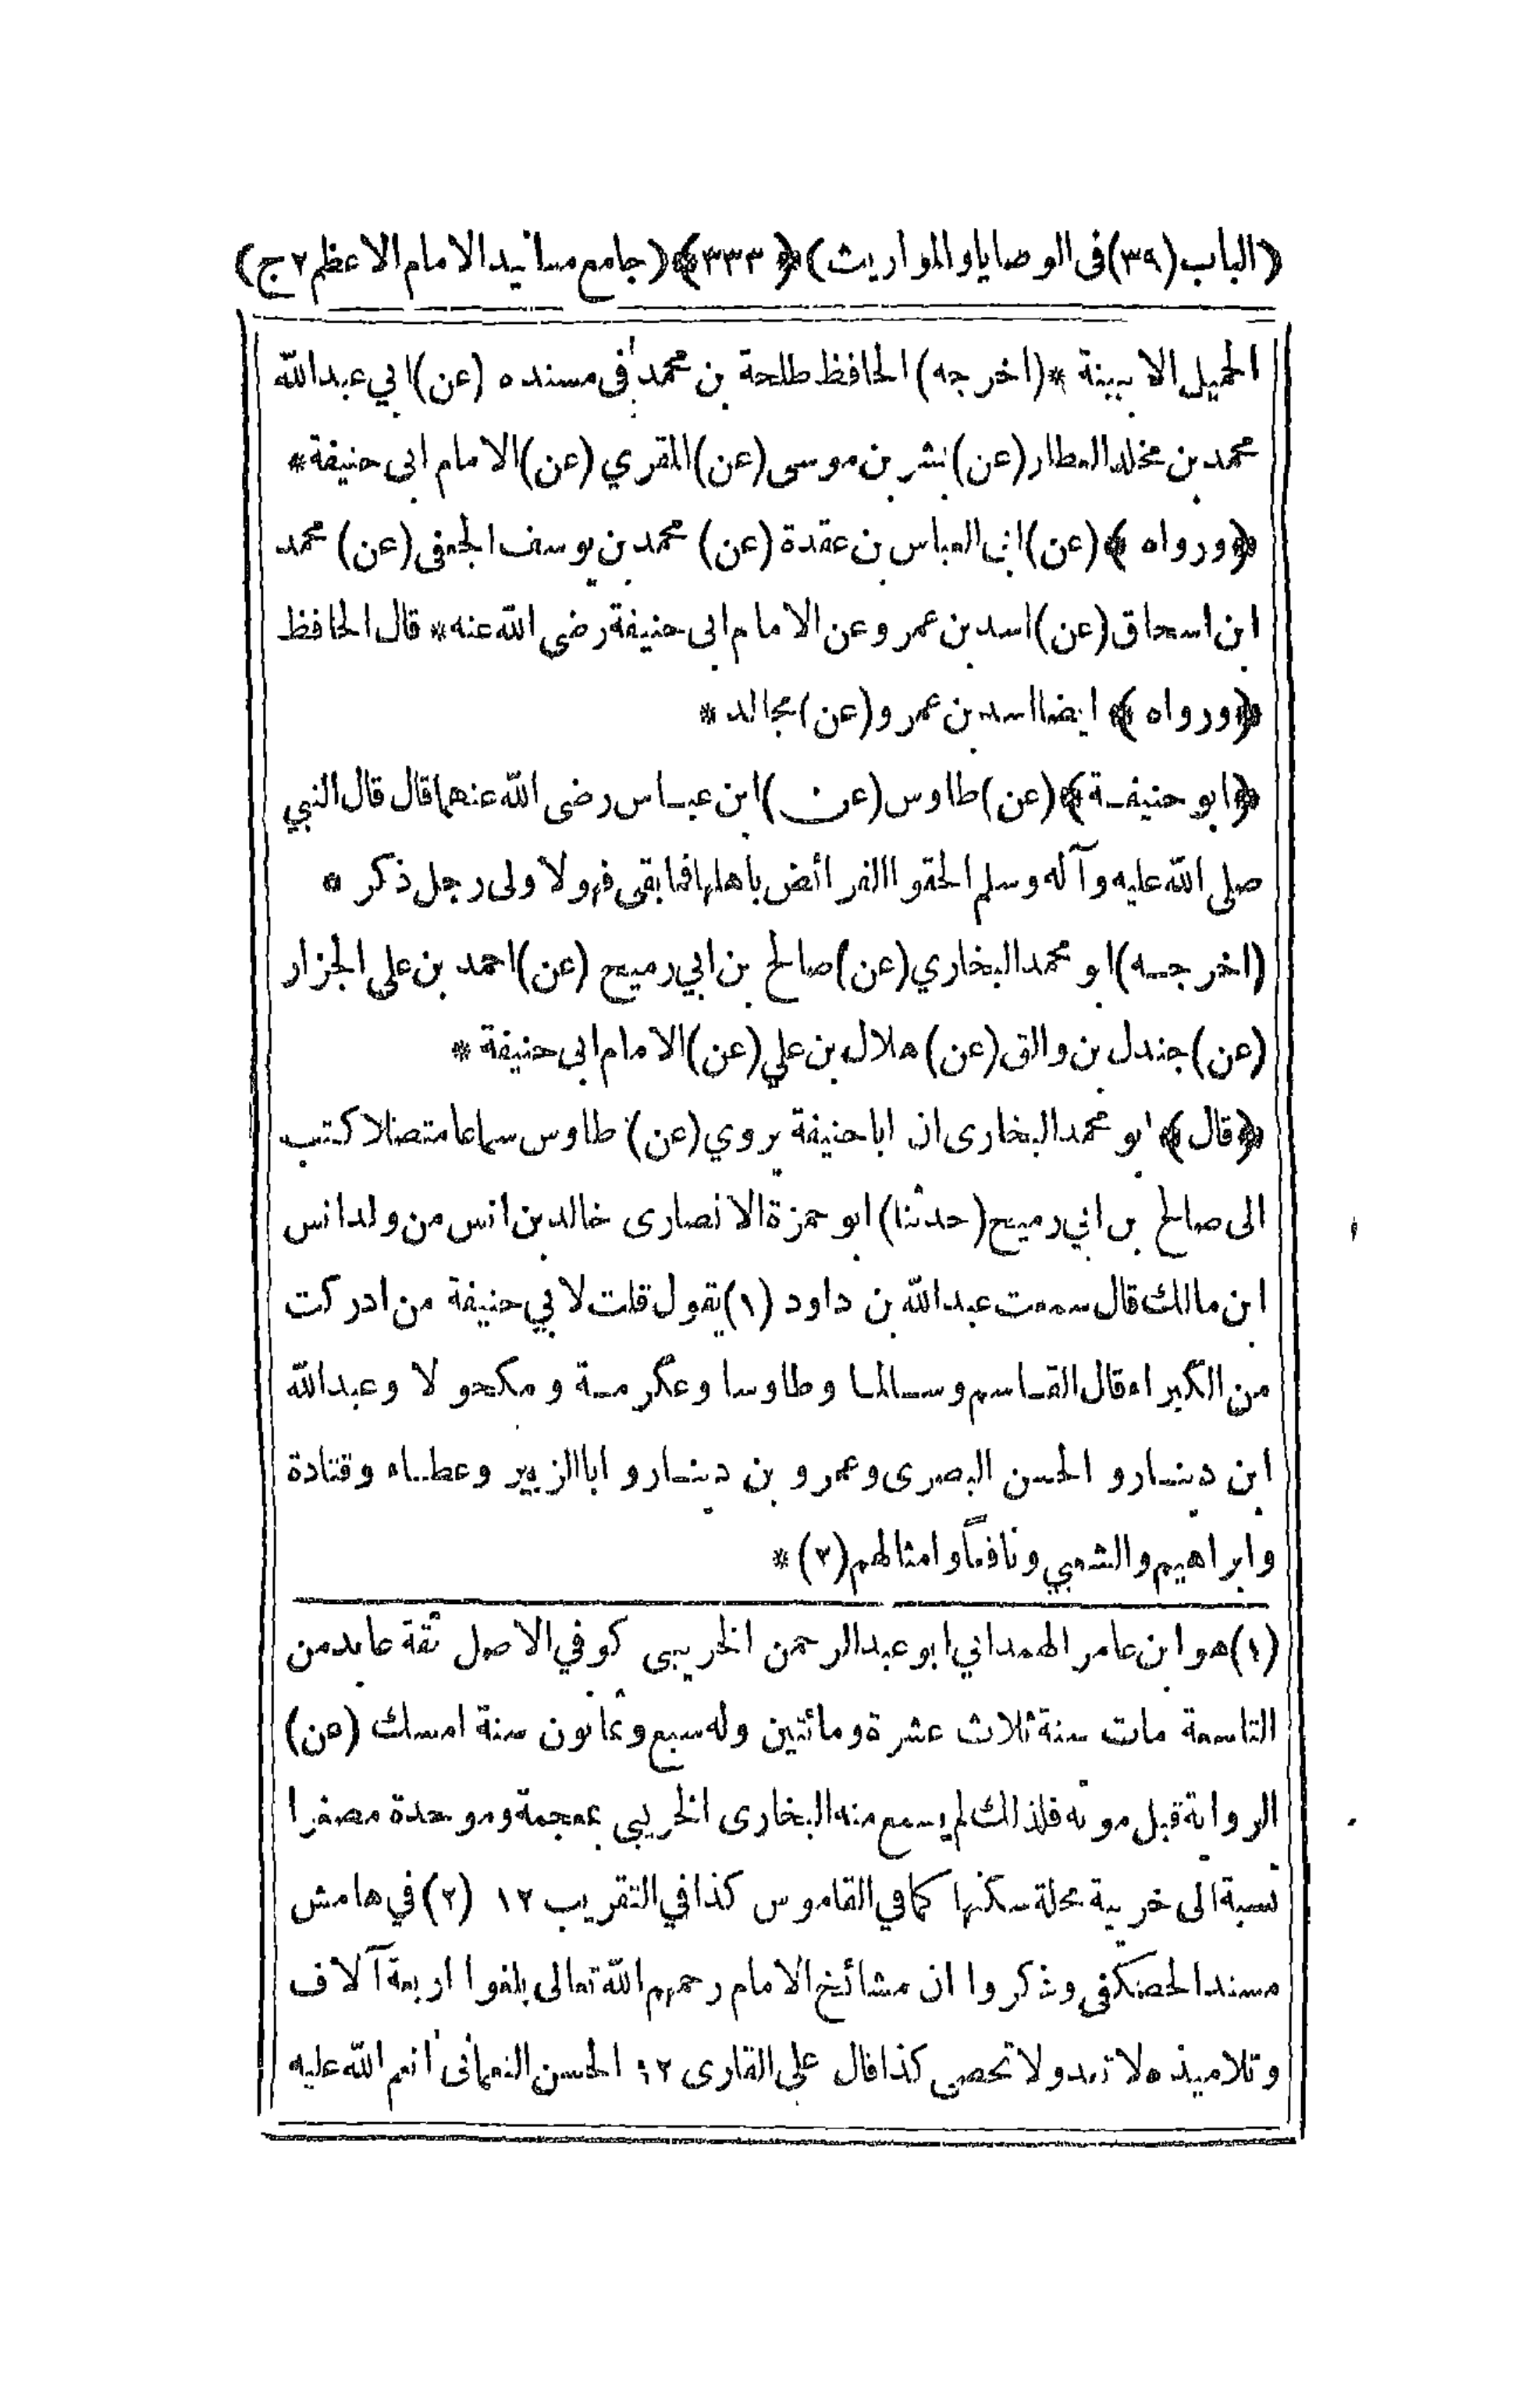 (الباب (٣٩) في الوصايا والمواريث) ﴿٣٣٣﴾ (جامع مسانيد الامام الاعظم ٢ ج)
الحميل الا ببينة * (اخرجه) الحافظ طلحة بن محمد في مسنده (عن) ابي عبدالله
محمد بن مخلد العطار (عن) بشر بن موسى (عن) المقري (عن) الامام ابى حنيفة *
﴿ورواه﴾ (عن) ابى العباس بن عقدة (عن) محمد بن يوسف الجعفى (عن) محمد
ابن اسحاق (عن) اسد بن عمر وعن الامام ابى حنيفة رضى الله عنه * قال الحافظ
﴿ورواه﴾ ايضا اسد بن عمرو (عن) مجالد *
﴿ابو حنيفة﴾ (عن) طاوس (عن) ابن عباس رضى الله عنهما قال قال النبي
صلى الله عليه وآله وسلم الحقوا الفرائض باهلها فما بقى فهو لاولى رجل ذكر *
(اخرجه) ابو محمد البخاري (عن) صالح بن ابي رميح (عن) احمد بن على الجزار
(عن) جندل بن والق (عن) هلال بن علي (عن) الامام ابى حنيفة *
﴿قال﴾ ابو محمد البخارى ان ابا حنيفة يروي (عن) طاوس سماعا متصلا كتب
الى صالح بن ابي رميح (حدثنا) ابو حمزة الانصارى خالد بن انس من ولد انس
ابن مالك قال سمعت عبدالله بن داود (١) يقول قلت لابي حنيفة من ادركت
من الكبراء قال القاسم وسالما وطاوسا وعكرمة ومكحولا وعبدالله
ابن دينار والحسن البصرى وعمرو بن دينار وابا الزبير وعطاء وقتادة
وابراهيم والشعبي ونافعا وامثالهم (٢) *
(١) هو ابن عامر الهمداني ابو عبدالرحمن الخريبى كوفي الاصل ثقة عابد من
التاسعة مات سنة ثلاث عشرة ومائتين وله سبع وثمانون سنة امسك (عن)
الرواية قبل موته فلذالك لم يسمع منه البخارى الخريبي بمعجمة وموحدة مصغرا
نسبة الى خريبة محلة سكنها كما في القاموس كذا في التقريب ١٢ (٢) في هامش
مسند الحصكفى وذكروا ان مشائخ الامام رحمهم الله تعالى بلغوا اربعة آلاف
وتلاميذه لا تعد ولا تحصى كذا قال على القارى ١٢ الحسن النعمانى انعم الله عليه